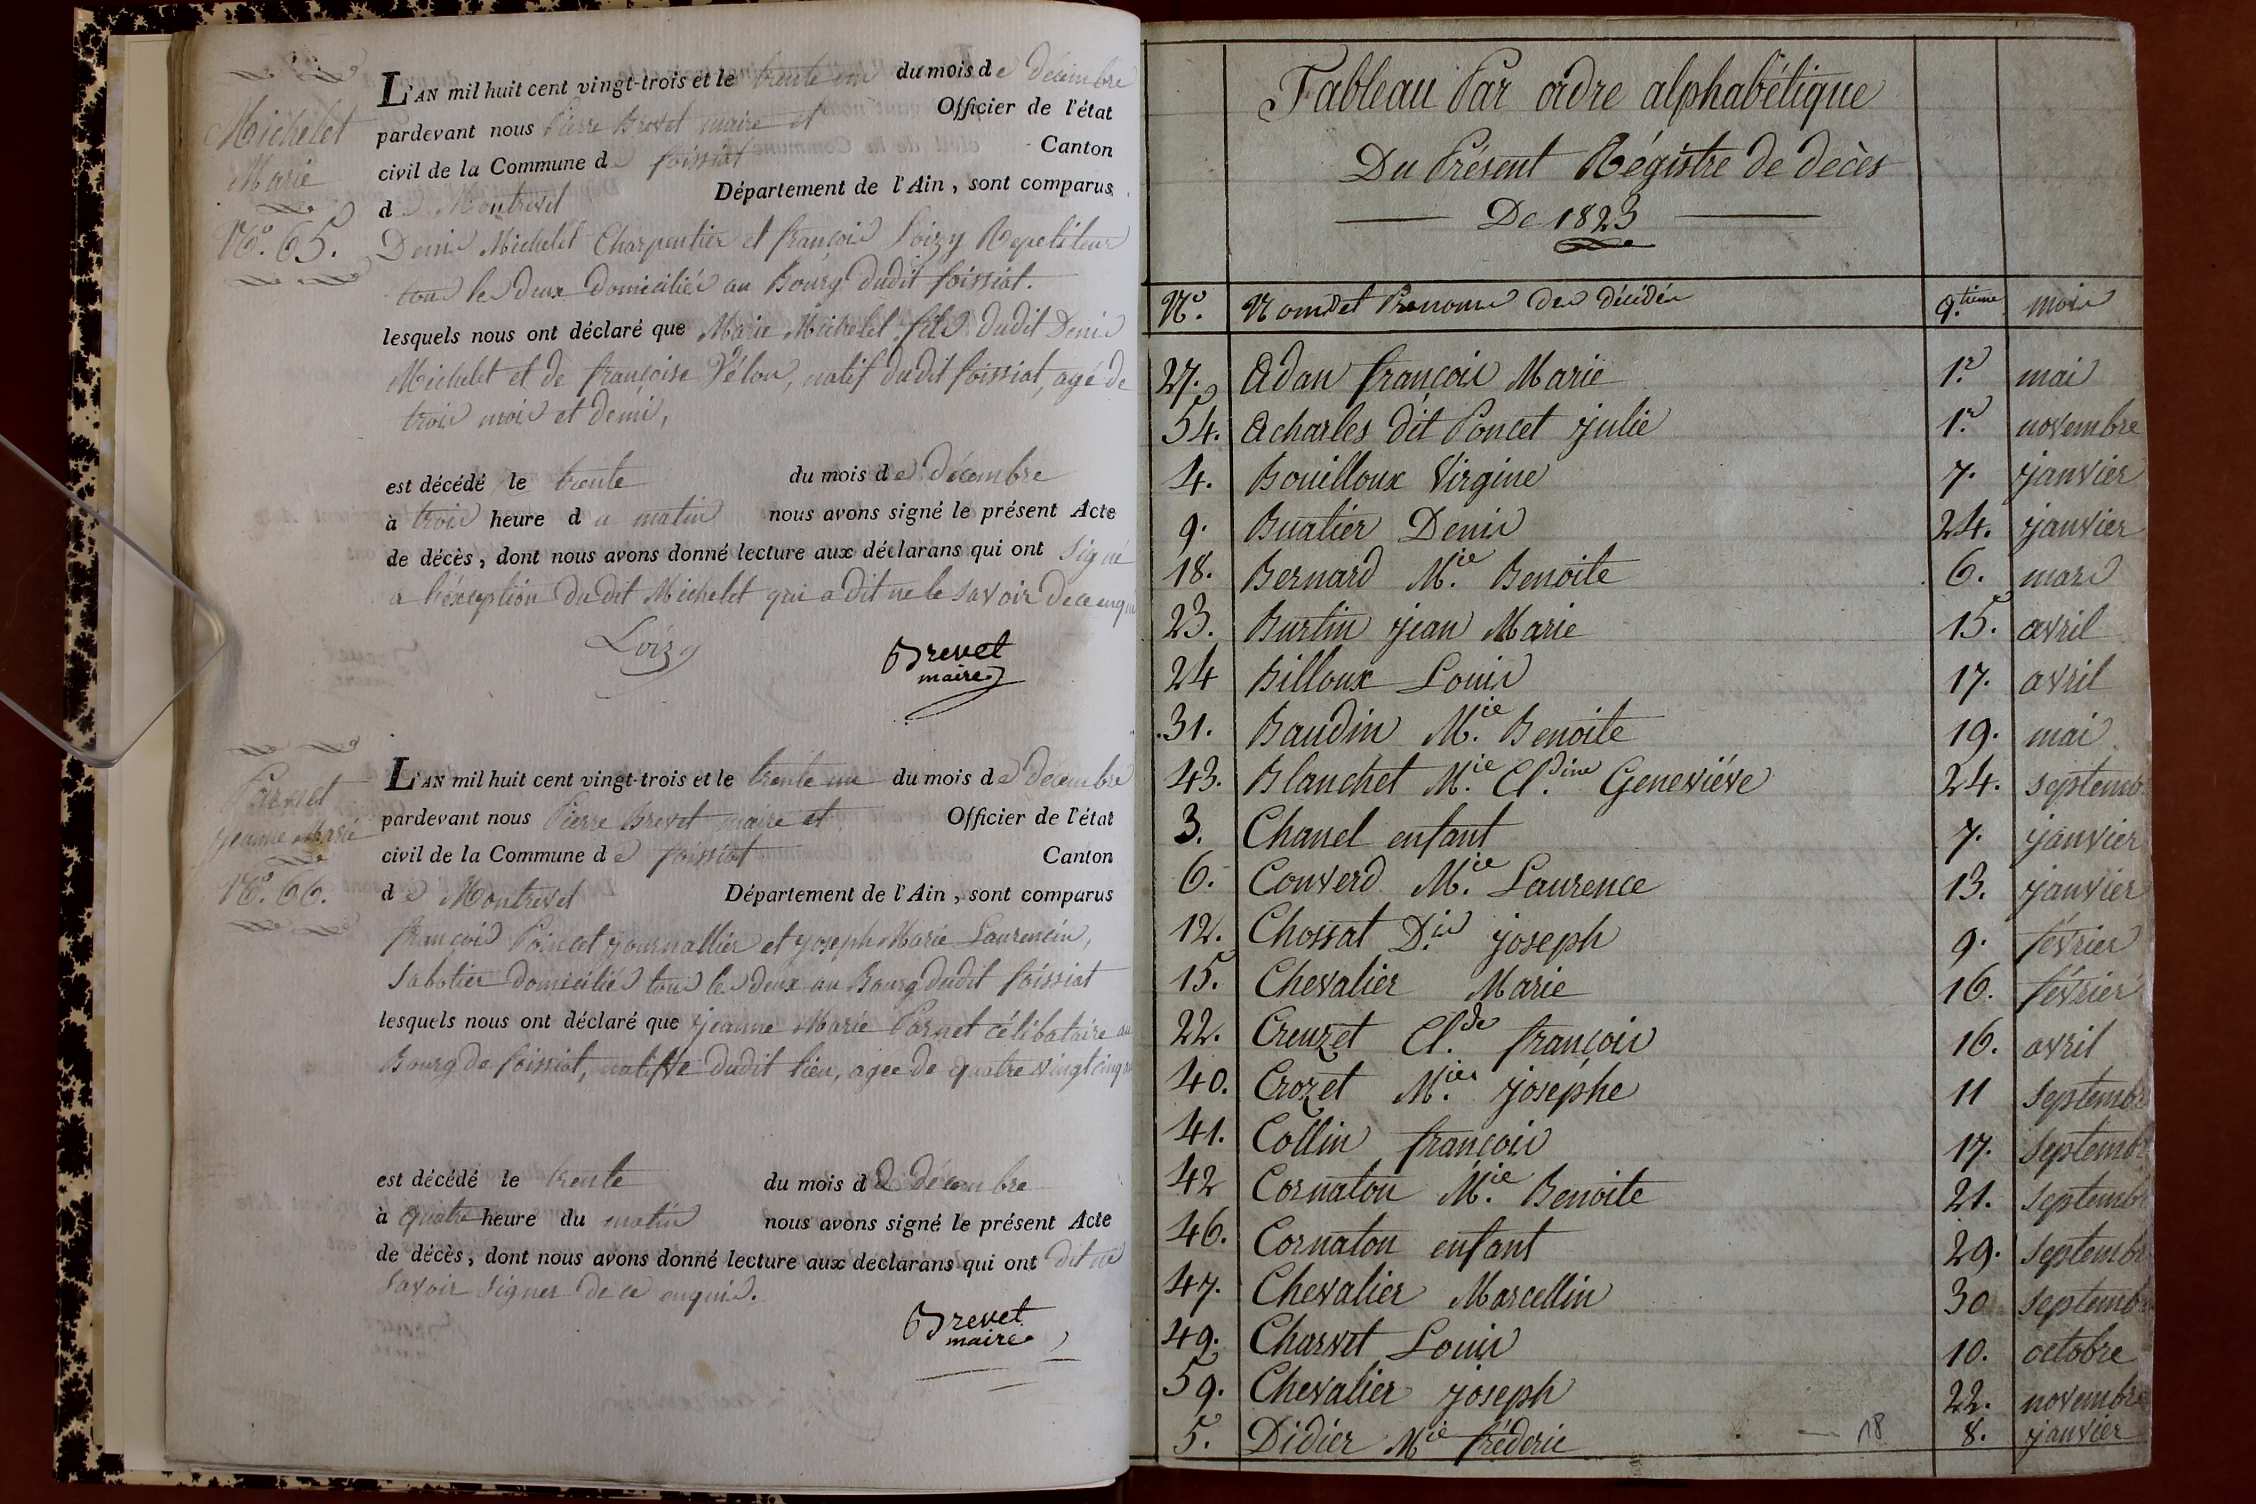 Michelet
Marie
N.º 65.
L'AN mil huit cent vingt-trois et le trente un du mois de décembre
pardevant nous Pierre Brevet maire et Officier de l'état
civil de la Commune de foissiat Canton
de Montrevel Département de l'Ain, sont comparus
Denis Michelet Charpentier et françois Loizy Repetiteur
tous les deux domiciliés au Bourg dudit foissiat.
lesquels nous ont déclaré que Marie Michelet fils dudit Denis
Michelet et de françoise Vélon, natif dudit foissiat, agé de
trois mois et demi,
est décédé le trente du mois de décembre
à trois heure du matin nous avons signé le présent Acte
de décès, dont nous avons donné lecture aux déclarans qui ont signé
a l'éxception dudit Michelet qui a dit ne le savoir de ce enquis
Loizy
Brevet
maire
Parnet
jeanne Marie
N.º 66.
L'AN mil huit cent vingt-trois et le trente un du mois de décembre
pardevant nous Pierre Brevet maire et Officier de l'état
civil de la Commune de foissiat Canton
de Montrevel Département de l'Ain, sont comparus
françois Poincet journallier et joseph Marie Laurencin,
Sabotier domiciliés tous les deux au Bourg dudit foissiat
lesquels nous ont déclaré que jeanne Marie Parnet célibataire au
Bourg de foissiat, native dudit lieu, agée de quatre vingt cinq
est décédé le trente du mois de décembre
à quatre heure du matin nous avons signé le présent Acte
de décès, dont nous avons donné lecture aux declarans qui ont dit ne
savoir signer de ce enquis.
Brevet
maire
Tableau Par ordre alphabétique
Du Présent Régistre de decès
De 1823
N.º Noms et Prenoms des décédés q.tieme mois
27. Adan françois Marie 1.r mai
54. Acharles dit Poncet julie 1.r novembre
4. Bouilloux Virgine 7. janvier
9. Buatier Denis 24. janvier
18. Bernard M.ie Benoite 6. mars
23. Burtin jean Marie 15. avril
24 Billoux Louis 17. avril
31. Baudin M.ie Benoite 19. mai
43. Blanchet M.ie Cl.dine Geneviéve 24. septemb
3. Chanel enfant 7. janvier
6. Converd M.ie Laurence 13. janvier
12. Chossat D.is joseph 9. février
15. Chevalier Marie 16. février
22. Creuzet Cl.de françois 16. avril
40. Crozet M.ie josephe 11 septembr
41. Collin françois 17. septembr
42 Cornaton M.ie Benoite 21. septembr
46. Cornaton enfant 29. septembr
47. Chevalier Marcellin 30 septembr
49. Charvet Louis 10. octobre
59. Chevalier joseph 22. novembre
5. Didier M.ie fréderic 8. janvier
18